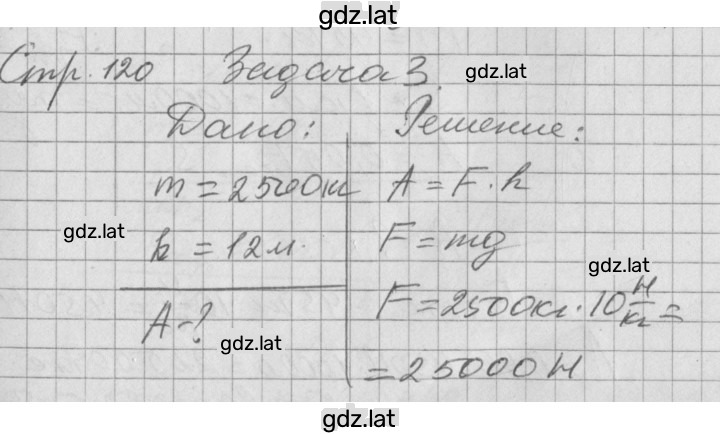 gdz.lat
Стр. 120 Задача 3. gdz.lat
Дано: Решение:
m = 2500кг A = F · h
gdz.lat
h = 12м. F = mg
gdz.lat
F = 2500кг · 10 Н/кг =
A - ? gdz.lat
= 25000 Н
gdz.lat